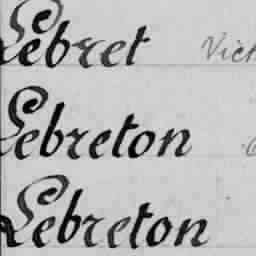 Lebret
Lebreton
Lebreton